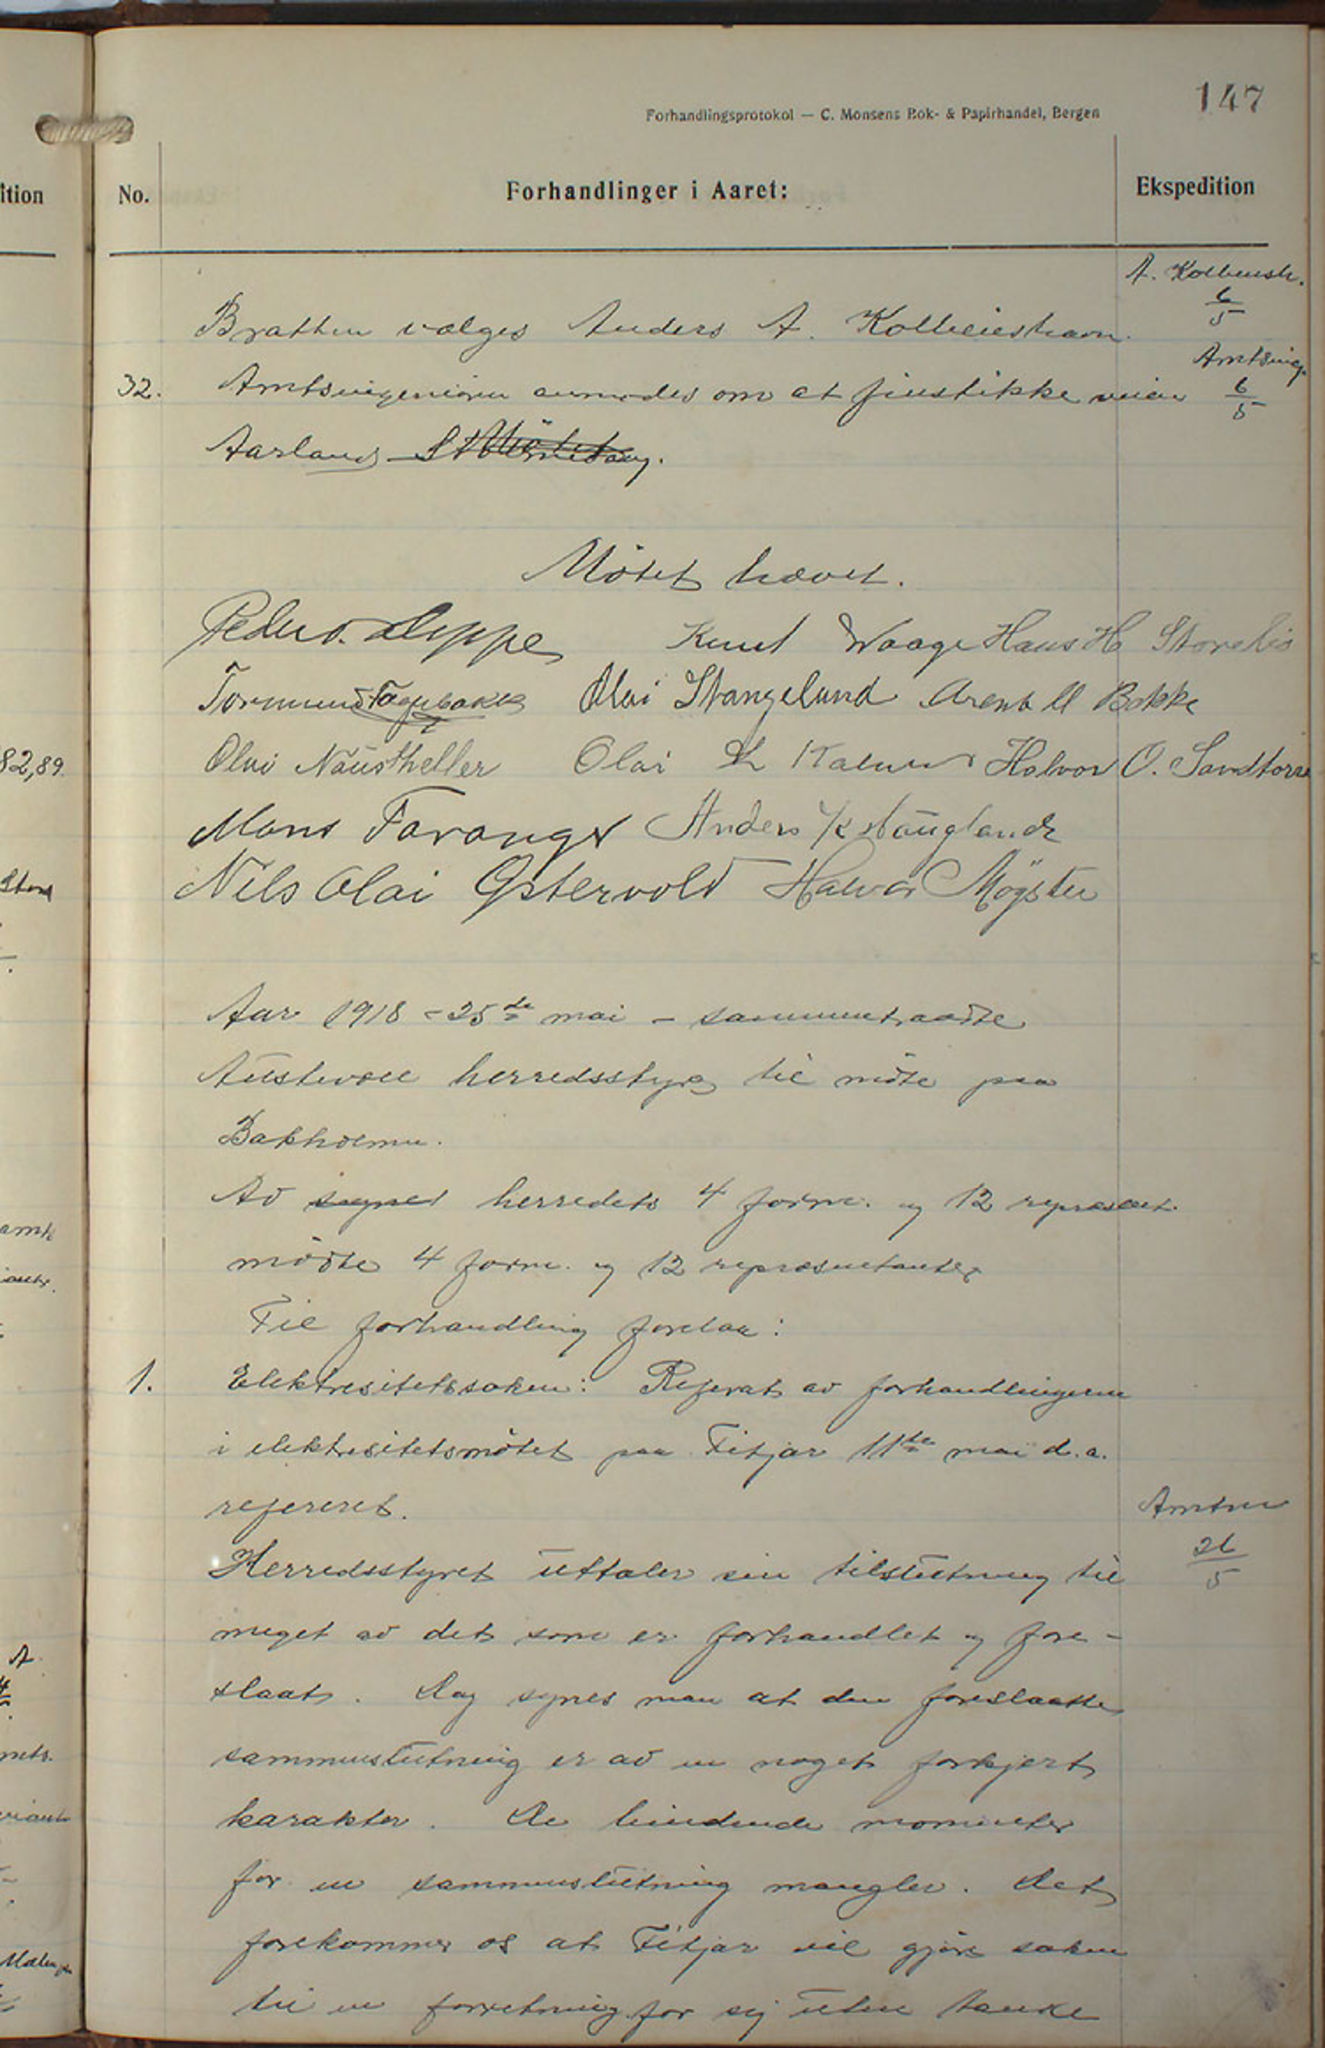 147
Forhandlingsprotokol — C. Monsens Bok- & Papirhandel, Bergen
No.
Forhandlinger i Aaret:
Ekspedition
ition
A. Kolbensh.
6/5
Bratten vælges Anders A. Kolbeinshavn.
32. Amtsingeniøren anmodes om at finstikke veien
Amtsing.
6/5
Aarland
Møtet hævet.
Peder O. Drppe Knut Waage Hans H Storekis
Tormund Fagerbakke Olai Stangeland Arent M Bakke
Olai Naustheller Olai L Kalvenes Halvor O. Sandtorv
Mons Taranger Anders K Haugland
Nils Olai Østervold Halvor Møgster
82,89.
Aar 1918 - 25de mai - sammentraadte
Austevoll herredsstyre til møte paa
Bakholmen.
Av sognet herredets 4 form. og 12 repræsent.
mødte 4 form. og 12 repræsentanter
Til forhandling forelaa:
1. Elektresitetssaken: Referat av forhandlingerne
i elektresitetsmøtet paa Fitjar 11te mai d.a.
refereret.
Amtm
26/5
Herredsstyret uttaler sin tilslutning til
meget av det som er forhandlet og fore-
slaat. Dog synes man at den foreslaatte
sammenslutning er av en noget forkjert
karakter. De bindende momenter
for en sammenslutning mangler. Det
forekommer os at Fitjar vil gjøre saken
til en forretning for sig uten tanke